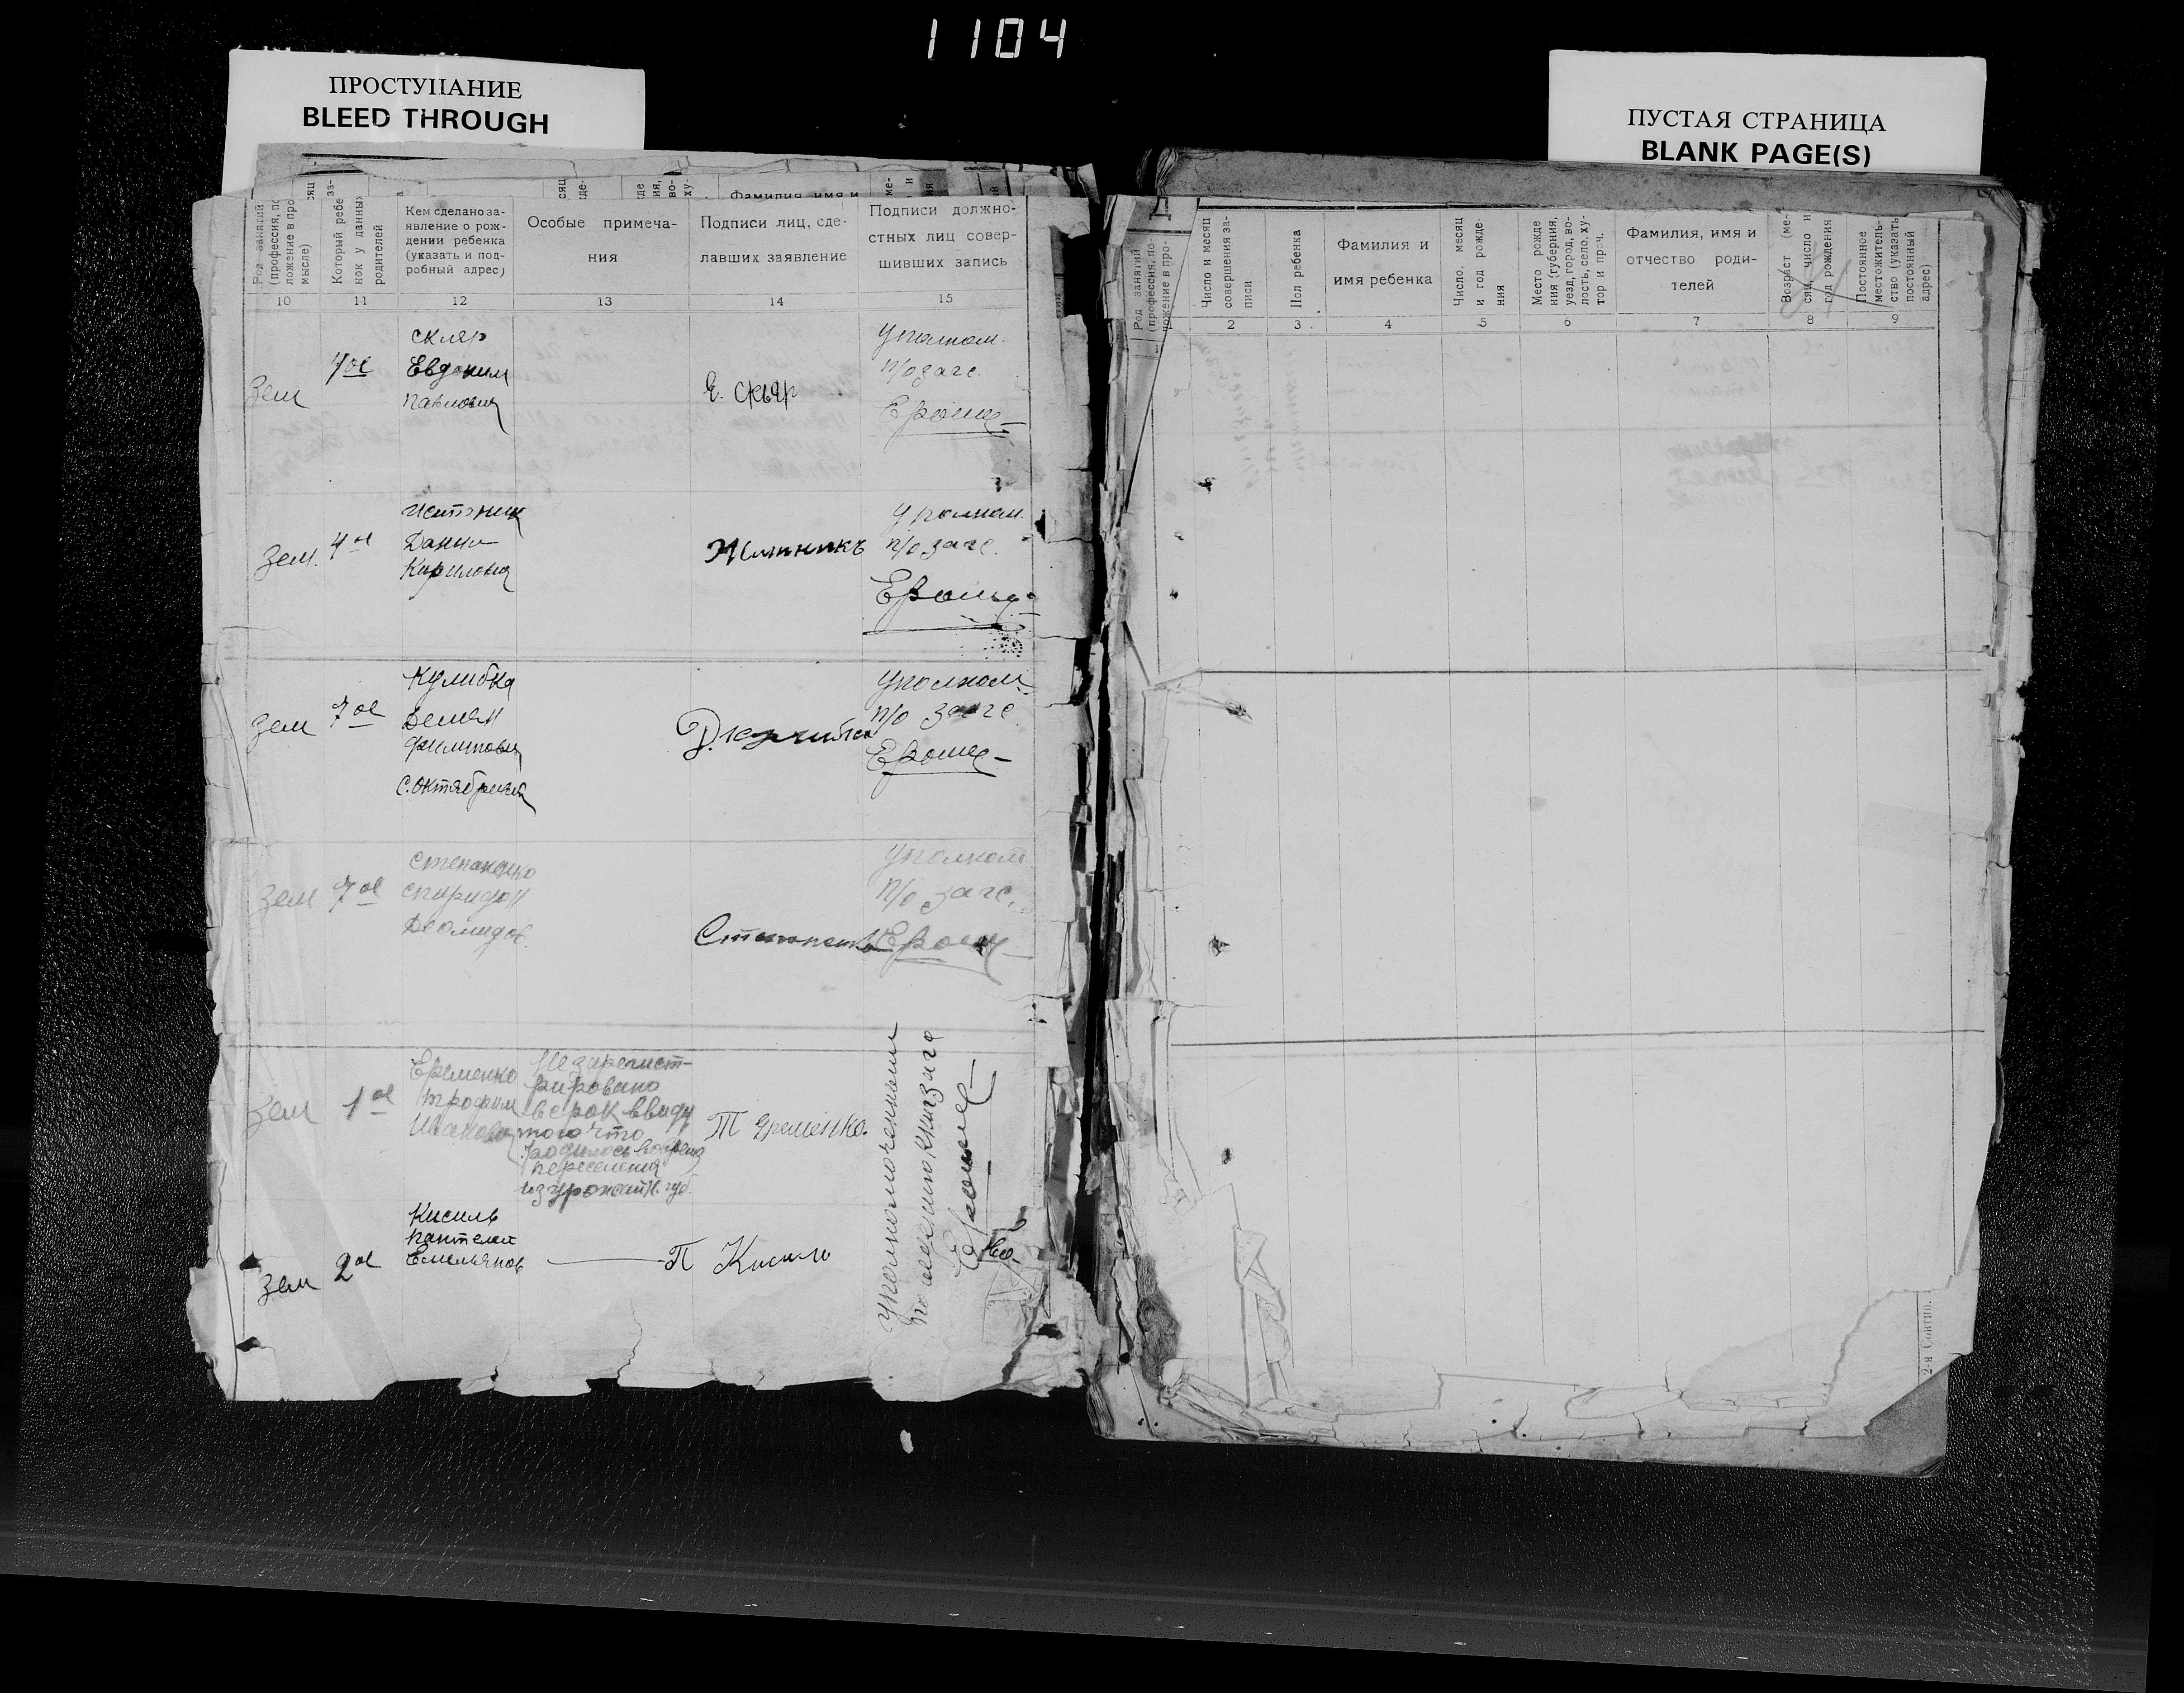 1104
ПРОСТУПАНИЕ
BLEED THROUGH
ПУСТАЯ СТРАНИЦА
BLANK PAGE(S)
Фамилия имя и
Род занятий
(профессия, по
ложение в про
мысле)
Который ребе
нок у данных
родителей
Кем сделано за-
явление о рож-
дении ребенка
(указать и под-
робный адрес)
Особые примеча-
ния
Подписи лиц, сде-
лавших заявление
Подписи должно-
стных лиц совер-
шивших запись
10 11 12 13 14 15
Зем
4ое
Скляр
Евдоким
Павлович
Е. Скляр
Уполном.
п/о загс.
Зем.
4ое
Кирилович
Уполном.
п/о загс.
Зем
7ое
Кулибка
Демян
Филипович
с. Октябрьска
Д. Кулибка
Уполном.
п/о загс
Зем
7ое
Степаненко
Спиридон
Деомидов.
Степаненко
Уполном
п/о загс.
Зем
1ое
Еременко
Трофим
Иванович
Незарегист-
рировано
в срок ввиду
того что
родилось вовремя
переселения
из
губ.
Т Еременко.
Уполномоченный
Зем
2ое
Кисиль
Пантелей
Емельянов
П Кисиль
Род занятий
(профессия, по-
ложение в про-
Число и месяц
совершения за-
писи
Пол ребенка
Фамилия и
имя ребенка
Число, месяц
и год рожде-
ния
Место рожде
ния (губерния,
уезд, город, во-
лость, село, ху-
тор и проч.
Фамилия, имя и
отчество роди-
телей
Возраст (ме-
сяц, число и
год рождения
Постоянное
местожитель-
ство (указать
постоянный
адрес)
2 3 4 5 6 7 8 9